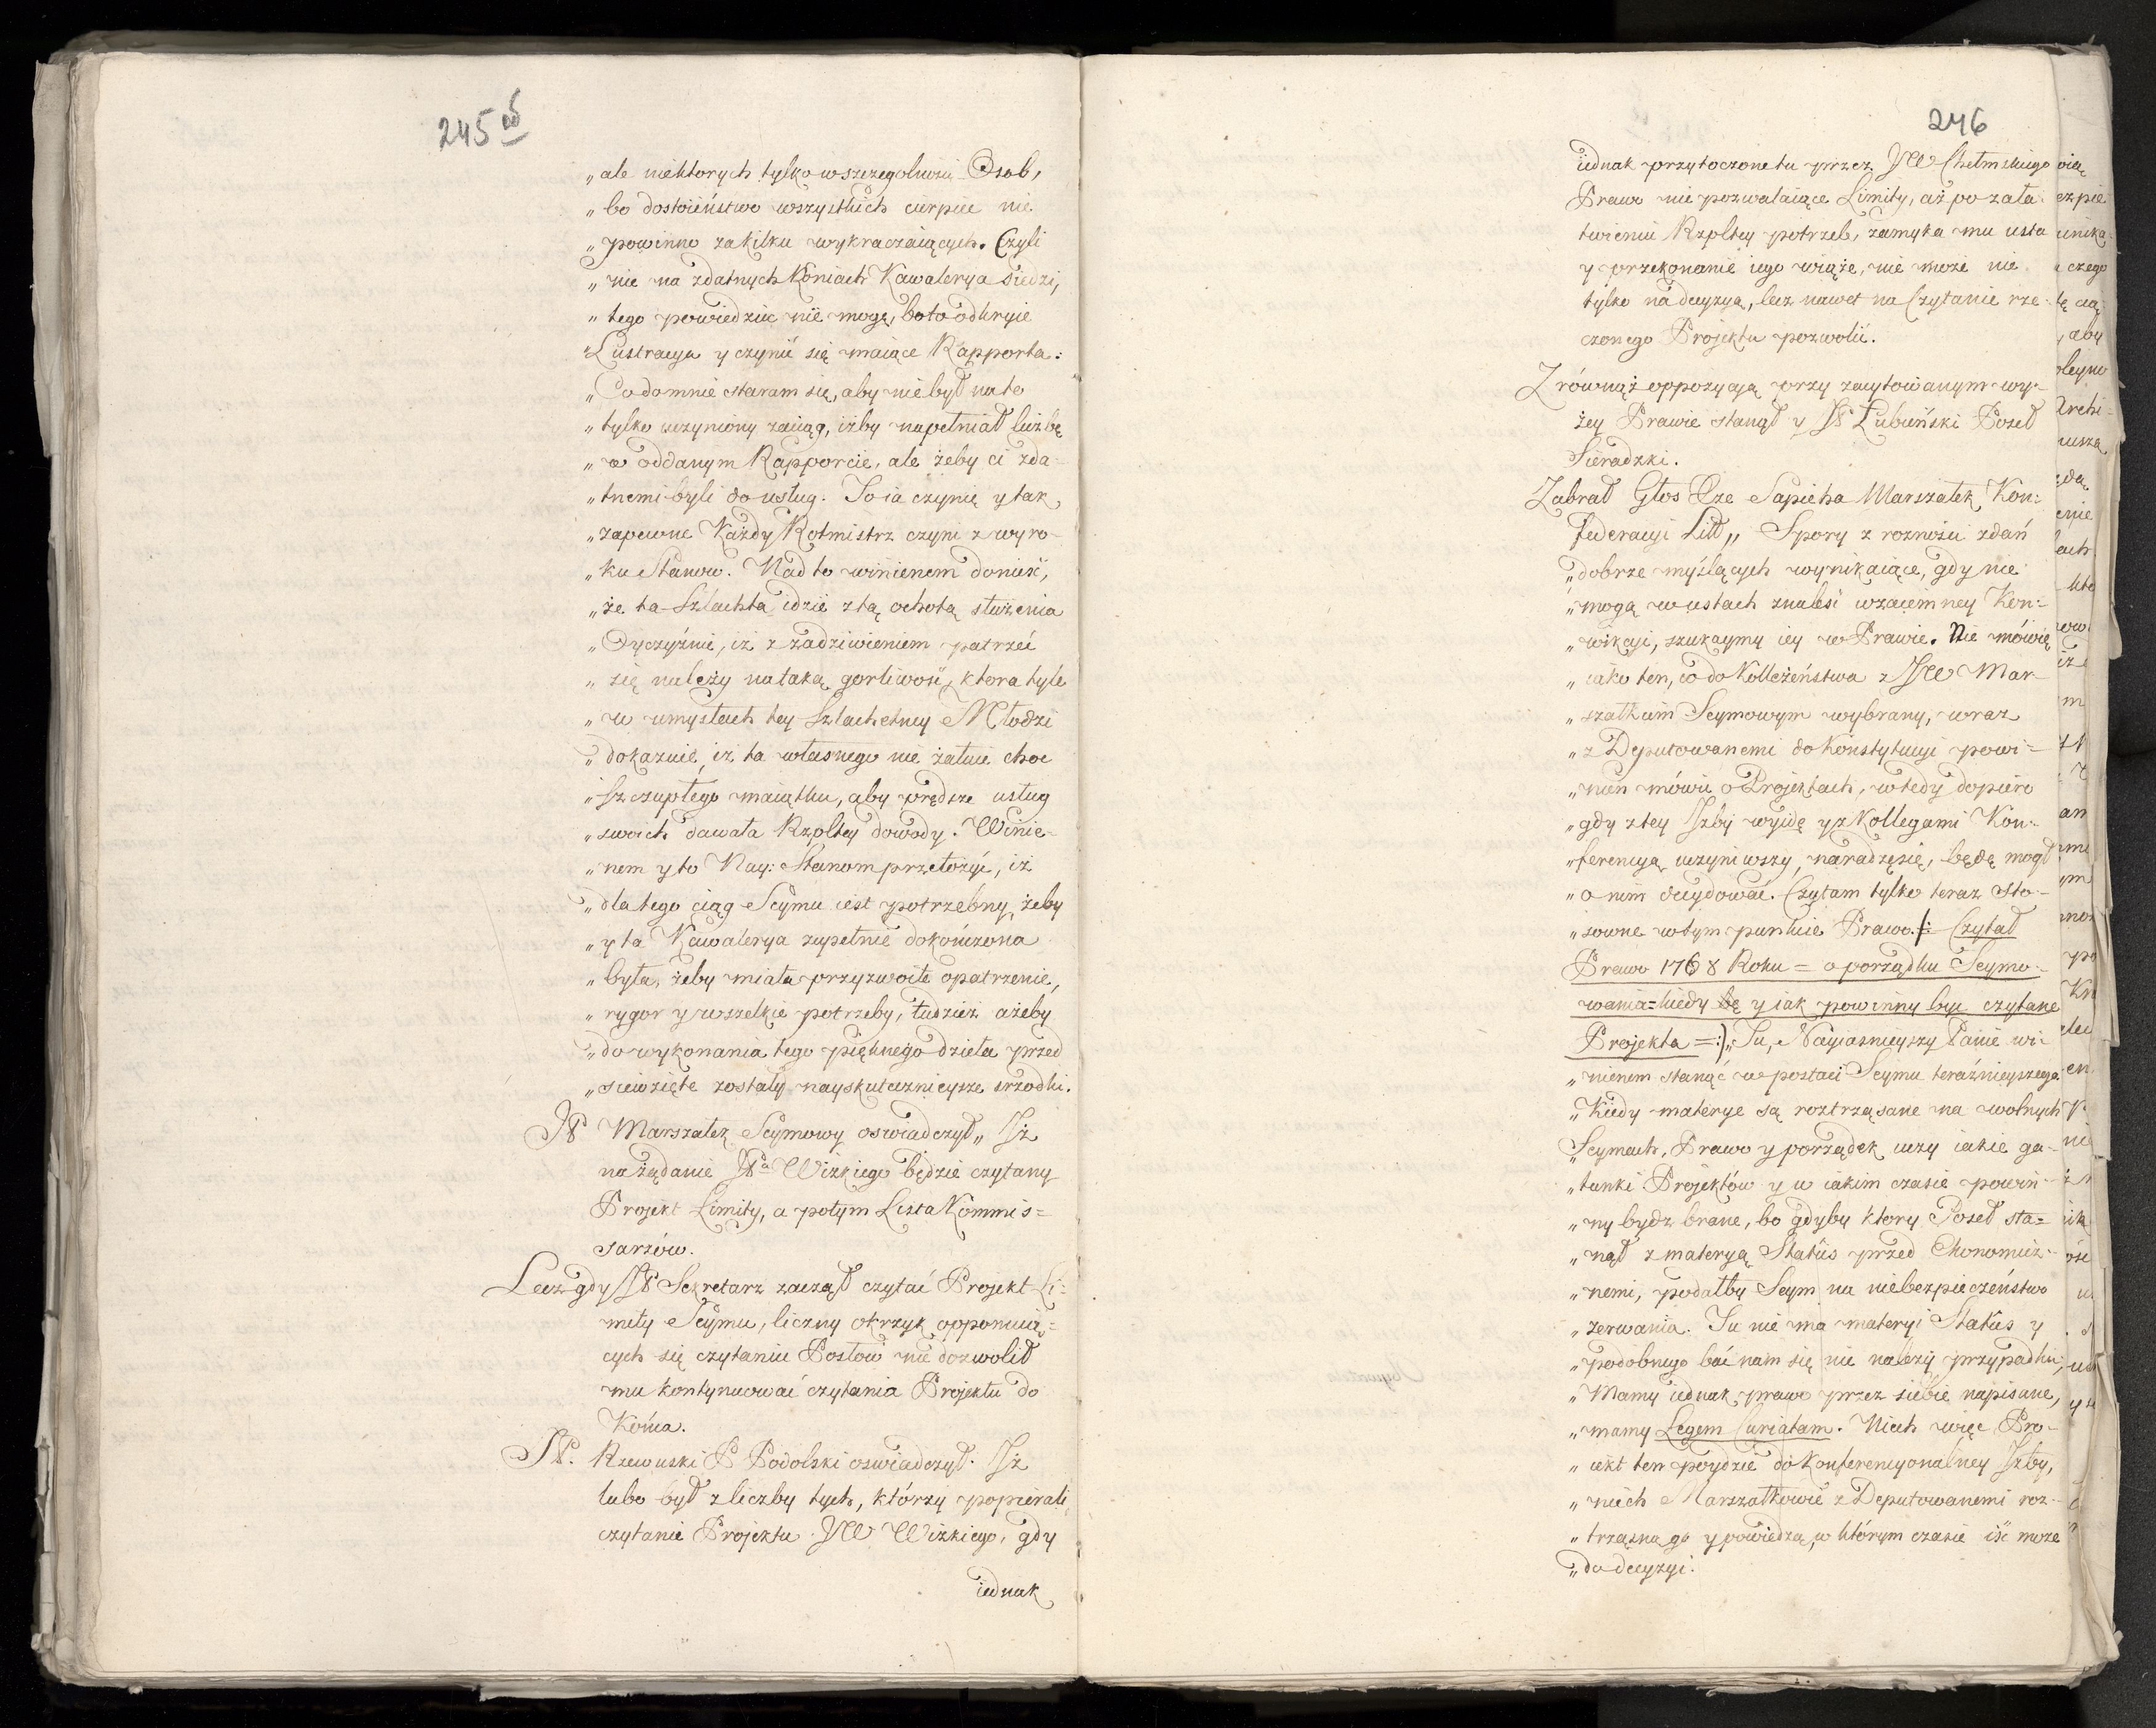 245 od
„ale niektorych tylko w szczegolności Osob,
„bo dostoieństwo wszystkich cierpiec nie
„powinno za kilku wykraczaiących. Czyli
„nie na zdatnych Koniach Kawalerya siedzi,
„tego powiedzieć nie mogę, bo to odkryie
„Lustracya y czynić się maiące Rapporta.
„Co do mnie staram się, aby nie był na to
„tylko uczyniony zaciąg, iżby napełniał liczbę
„w oddanym Rapporcie, ale żeby ci zda-
„tnemi byli do usług. To ia czynię y tak
„zapewne Każdy Rotmistrz czyni z wyro-
„ku Stanow. Nad to winienem donieść,
„że ta Szlachta idzie z tą ochotą służenia
„Oyczyźnie, iż z zadziwieniem patrzeć
„się należy na taką gorliwość, ktora tyle
„w umysłach tey Szlachetney Młodzi
„dokazuie, iż ta własnego nie żałuie choć
„szczupłego maiątku, aby prędsze usług
„swoich dawała Rzpltey dowody. Winie-
„nem y to Nay: Stanom przełożyć, iż
„dla tego ciąg Seymu iest potrzebny, żeby
„y ta Kawalerya zupełnie dokończona
„była, żeby miała przyzwoite opatrzenie,
„rygor y wszelkie potrzeby, tudzież ażeby
„do wykonania tego pięknego dzieła przed
„siewzięte zostały nayskutecznieysze srzodki.
JP Marszałek Seymowy oswiadczył„ Iż
na żądanie JPa Wizkiego będzie czytany
Projekt Limity, a potym Lista Kommis=
sarzów.
Lecz gdy JP Sekretarz zaczął czytać Projekt Li=
mity Seymu, liczny okrzyk opponuią=
cych się czytaniu Posłow nie dozwolił
mu kontynuować czytania Projektu do
Końca.
JP. Rzewuski P Podolski oswiadczył. Iż
lubo był z liczby tych, którzy popierali
czytanie Projektu JW Wizkiego, gdy
iednak
246
iednak przytoczone tu przez JW Chełmskiego
Prawo nie pozwalaiące Limity, aż po zała
twieniu Rzpltey potrzeb, zamyka mu usta
y przekonanie iego wiąże, nie może nie
tylko na decyzyą, lecz nawet na Czytanie rze-
czonego Projektu pozwolić.
Z równąż oppozycyą przy zacytowanym wy-
żey Prawie stanął y JP Łubieński Poseł
Sieradzki.
Zabrał Głos Xże Sapieha Marszałek Kon:
federacyi Litt„ Spory z rożności zdań
„dobrze myślących wynikaiące, gdy nie
„mogą w ustach znaleść wzaiemney Kon:
„wikcyi, szukaymy iey w Prawie. Nie mówię
„iako ten, co do Kolleżeństwa z JW Mar-
„szałkiem Seymowym wybrany, wraz
„z Deputowanemi do Konstytucyi powi=
„nien mówić o Projektach, wtedy dopiero
„gdy z tey Izby wyidę y z Kollegami Kon-
„ferencyą uczyniwszy, naradzę się, będę mogł
„o nim decydować. Czytam tylko teraz sto-
„sowne w tym punkcie Prawo. /: Czytał
Prawo 1768 Roku = o porządku Seymo-
wania = kiedy y iak powinny być czytane
Projekta = :) „Tu, Nayiasnieyszy Panie wi-
„nienem stanąć w postaci Seymu teraźnieyszego.
„Kiedy materye są roztrząsane na wolnych
„Seymach, Prawo y porządek uczy iakie ga-
„tunki Projektów y w iakim czasie powin-
„ny bydz brane, bo gdyby ktory Poseł sta=
„nął z materyą Status przed Ekonomicz-
„nemi, podałby Seym na niebezpieczeństwo
„zerwania. Tu nie ma materyi Status y
„podobnego bać nam się nie należy przypadku,
„Mamy iednak prawo przez siebie napisane,
„mamy Legem Curiatam. Niech więc Pro-
„iekt ten poydzie do Konferencyonalney Izby,
„niech Marszałkowie z Deputowanemi roz-
„trząsną go y powiedzą, w którym czasie iść może
„do decyzyi.